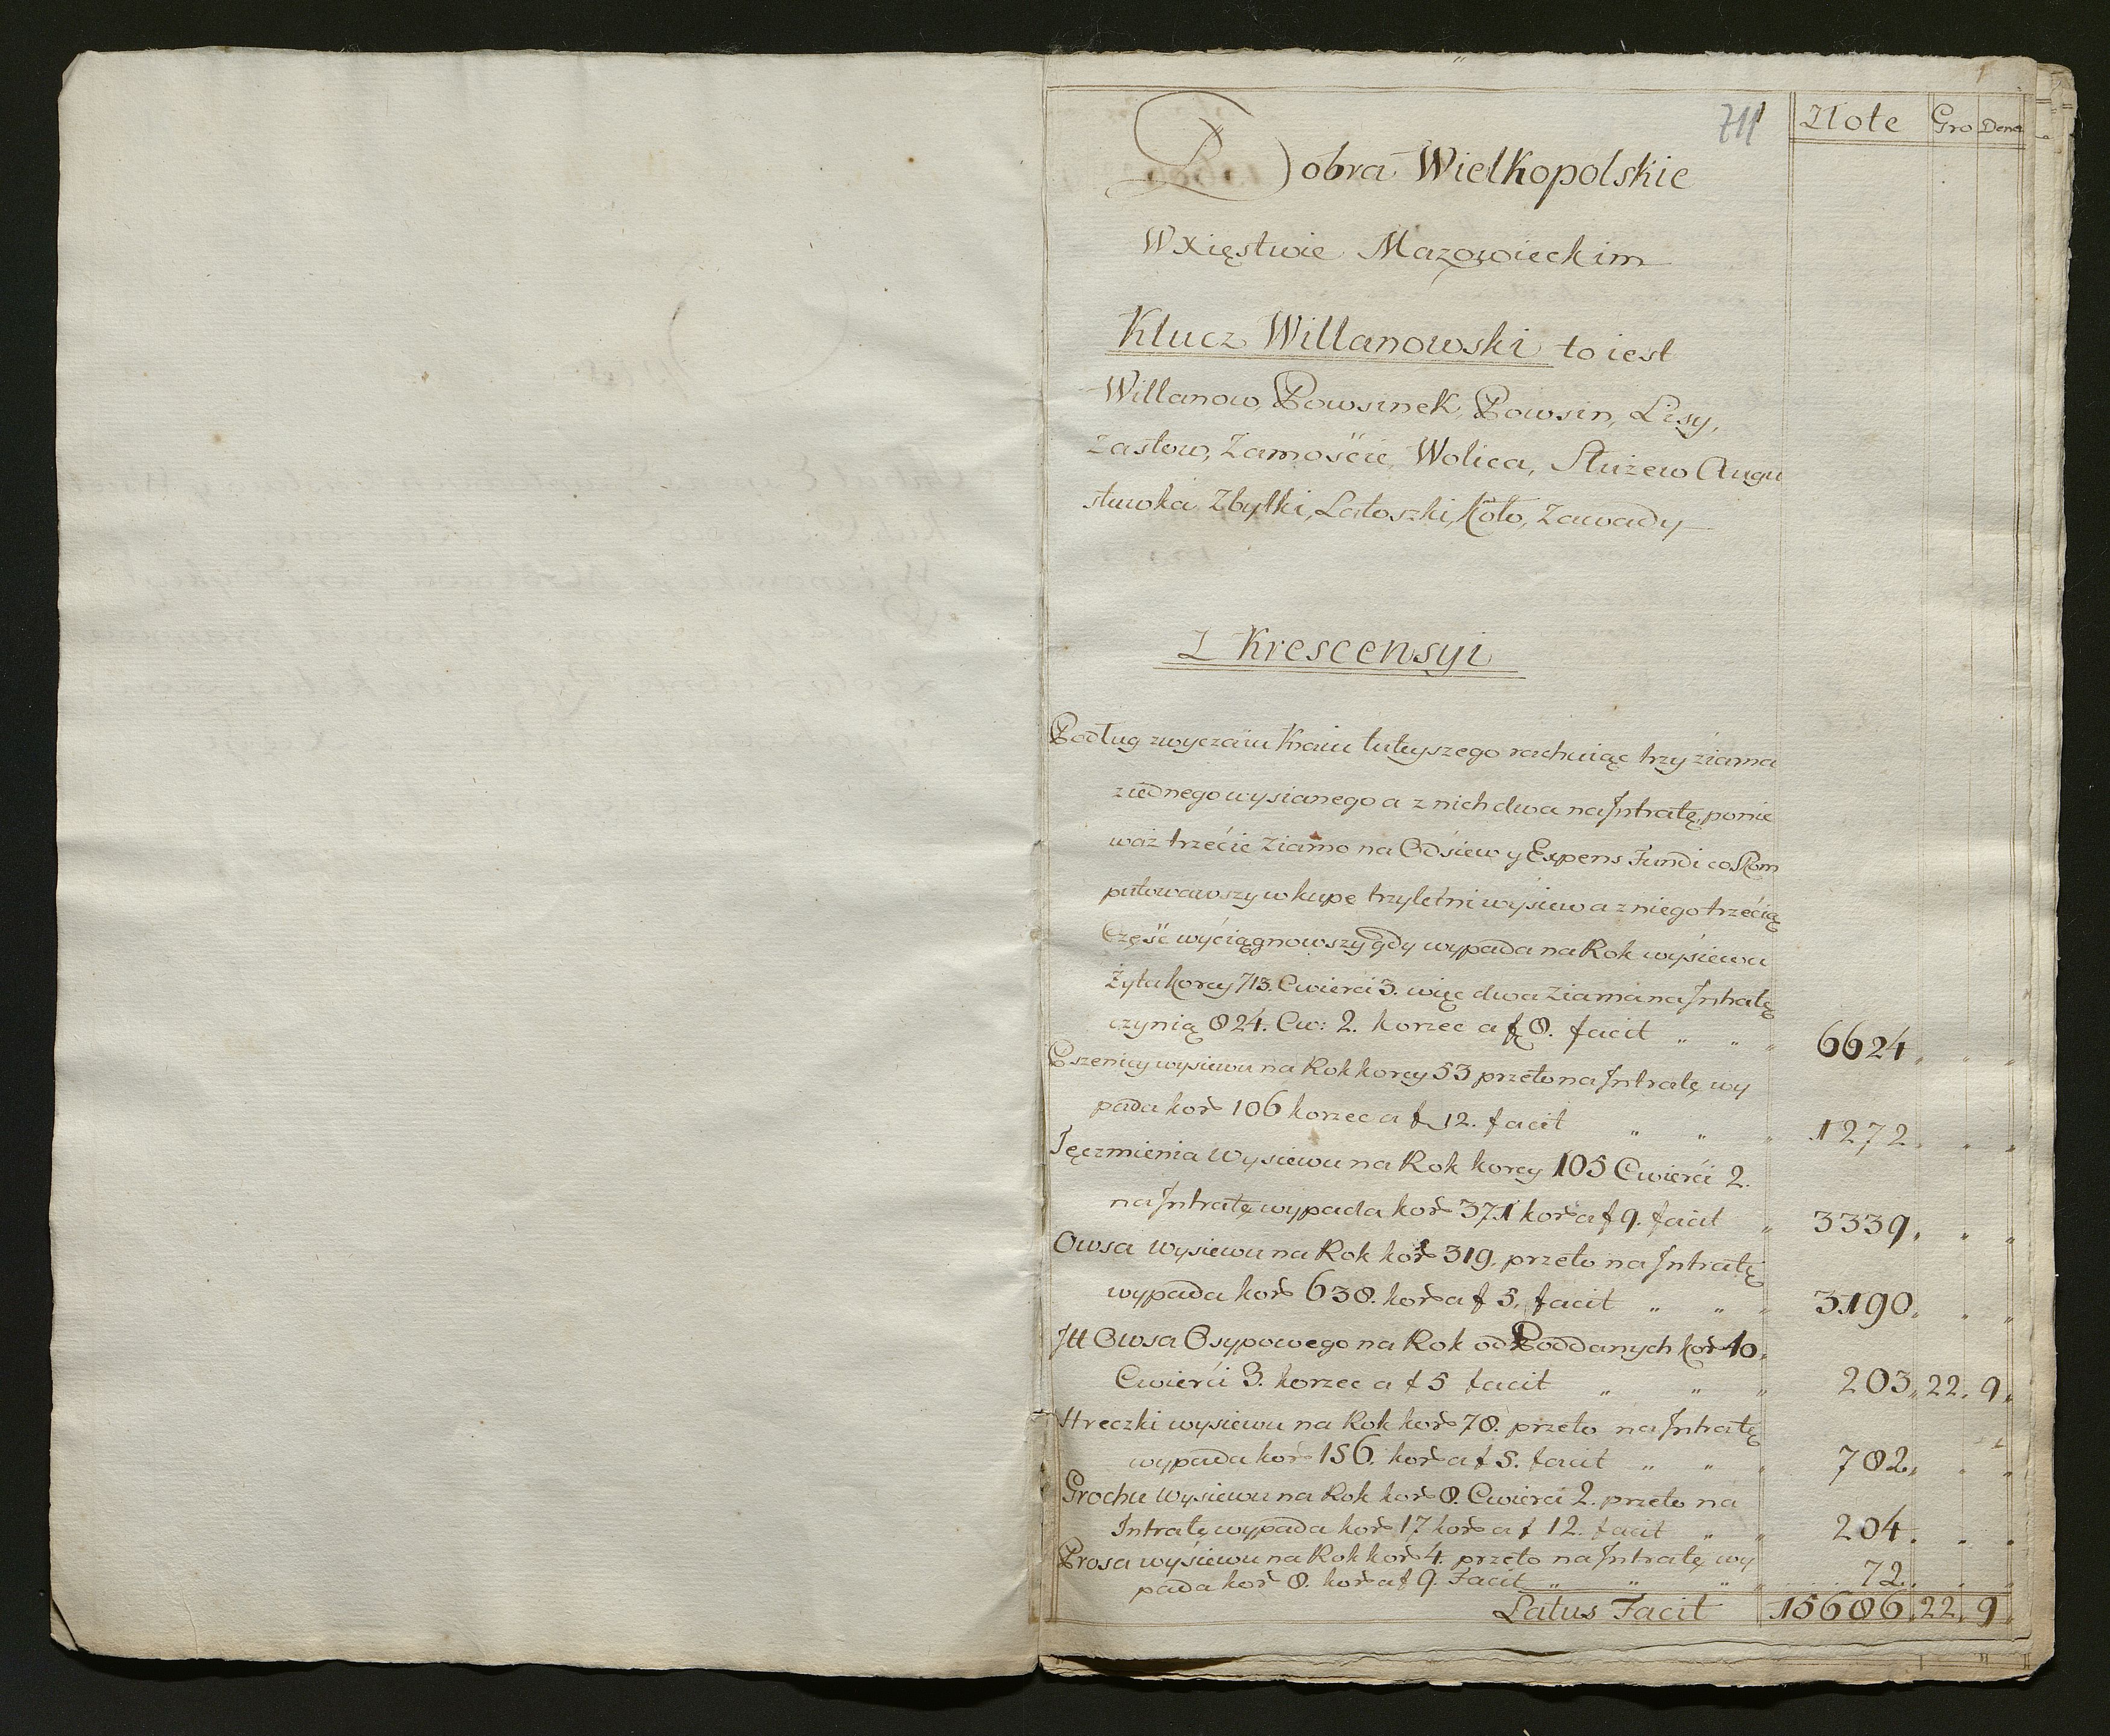 711
Złote Gro Dena
Dobra Wielkopolskie
W Xięstwie Mazowieckim
Klucz Willanowski to iest
Willanow, Powsinek, Powsin, Lisy,
Zastow, Zamoście, Wolica, Służew Augu
stuwka Zbytki, Latoszki, Koło, Zawady
Z Krescensyi
Podług zwyczaiu Kraiu tuteyszego rachuiąc trzy ziarna
z iednego wysianego a z nich dwa na Intratę, ponie
waż trzećie Ziarno na Odsiew y Expens Fundi co skom
putowawszy w kupe trzyletni wyśiew a z niego trzećią
Część wyciągnowszy gdy wypada na Rok wyśiewu
Żyta korcy 713. Cwierci 3. więc dwa Ziarna na Intratę
czynią 824. Cw: 2. korzec a f 8. facit „ „ „ 6624 „ „
Pszenicy wysiewu na Rok korcy 53 przeto na Intratę wy
pada kor 106 korzec a f 12. facit „ „ „ 1272 „ „
Jęczmienia Wysiewu na Rok korcy 105 Cwierći 2.
na Intratę wypada kor 371 kor a f 9. facit „ 3339 „ „
Owsa Wysiewu na Rok kor 319. przeto na Intratę
wypada kor 638. kor a f 5. facit „ „ „ 3190 „ „
Itt Owsa Osypowego na Rok od Poddanych kor 40.
Cwierći 3. korzec a f 5 facit „ „ „ 203 22 9
Hreczki wysiewu na Rok kor 78. przeto na Intratę
wypada kor 156. kor a f 5. facit „ „ „ 782 „ „
Grochu Wysiewu na Rok kor 8. Cwierci 2. przeto na
Intratę wypada kor 17 kor a f 12. facit „ „ 204 „ „
Prosa wyśiewu na Rok kor 4. przeto na Intratę wy
pada kor 8. kor a f 9. Facit „ „ „ 72 „ „
Latus Facit 15686 22 9